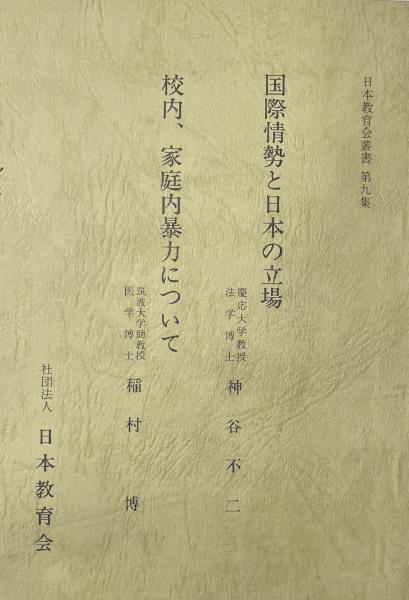 日本教育会叢書 第九集
国際情勢と日本の立場
慶応大学教授
法学博士
神谷不二
校内、家庭内暴力について
筑波大学助教授
医学博士
稲村博
社団法人 日本教育会